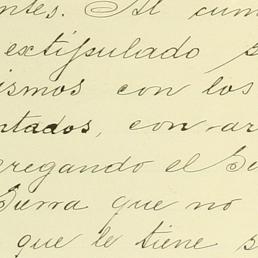 ntes. Al cum
extipulado
ismos con los
ntados, con ar
regando el Su
Surra que no
que le tiene s